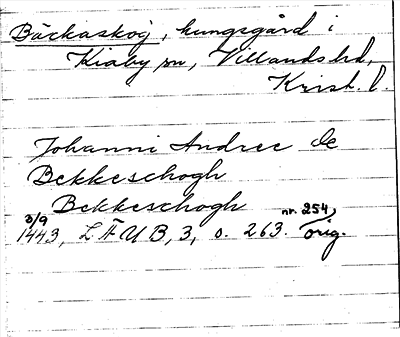 Bäckaskog, kungsgård i
Kiaby sn, Villands hd,
Krist. l.
Johanni Andree de
Bekkeschogh
Bekkeschogh
3/9 1443, LÄUB, 3, s. 263. nr. 254, orig.